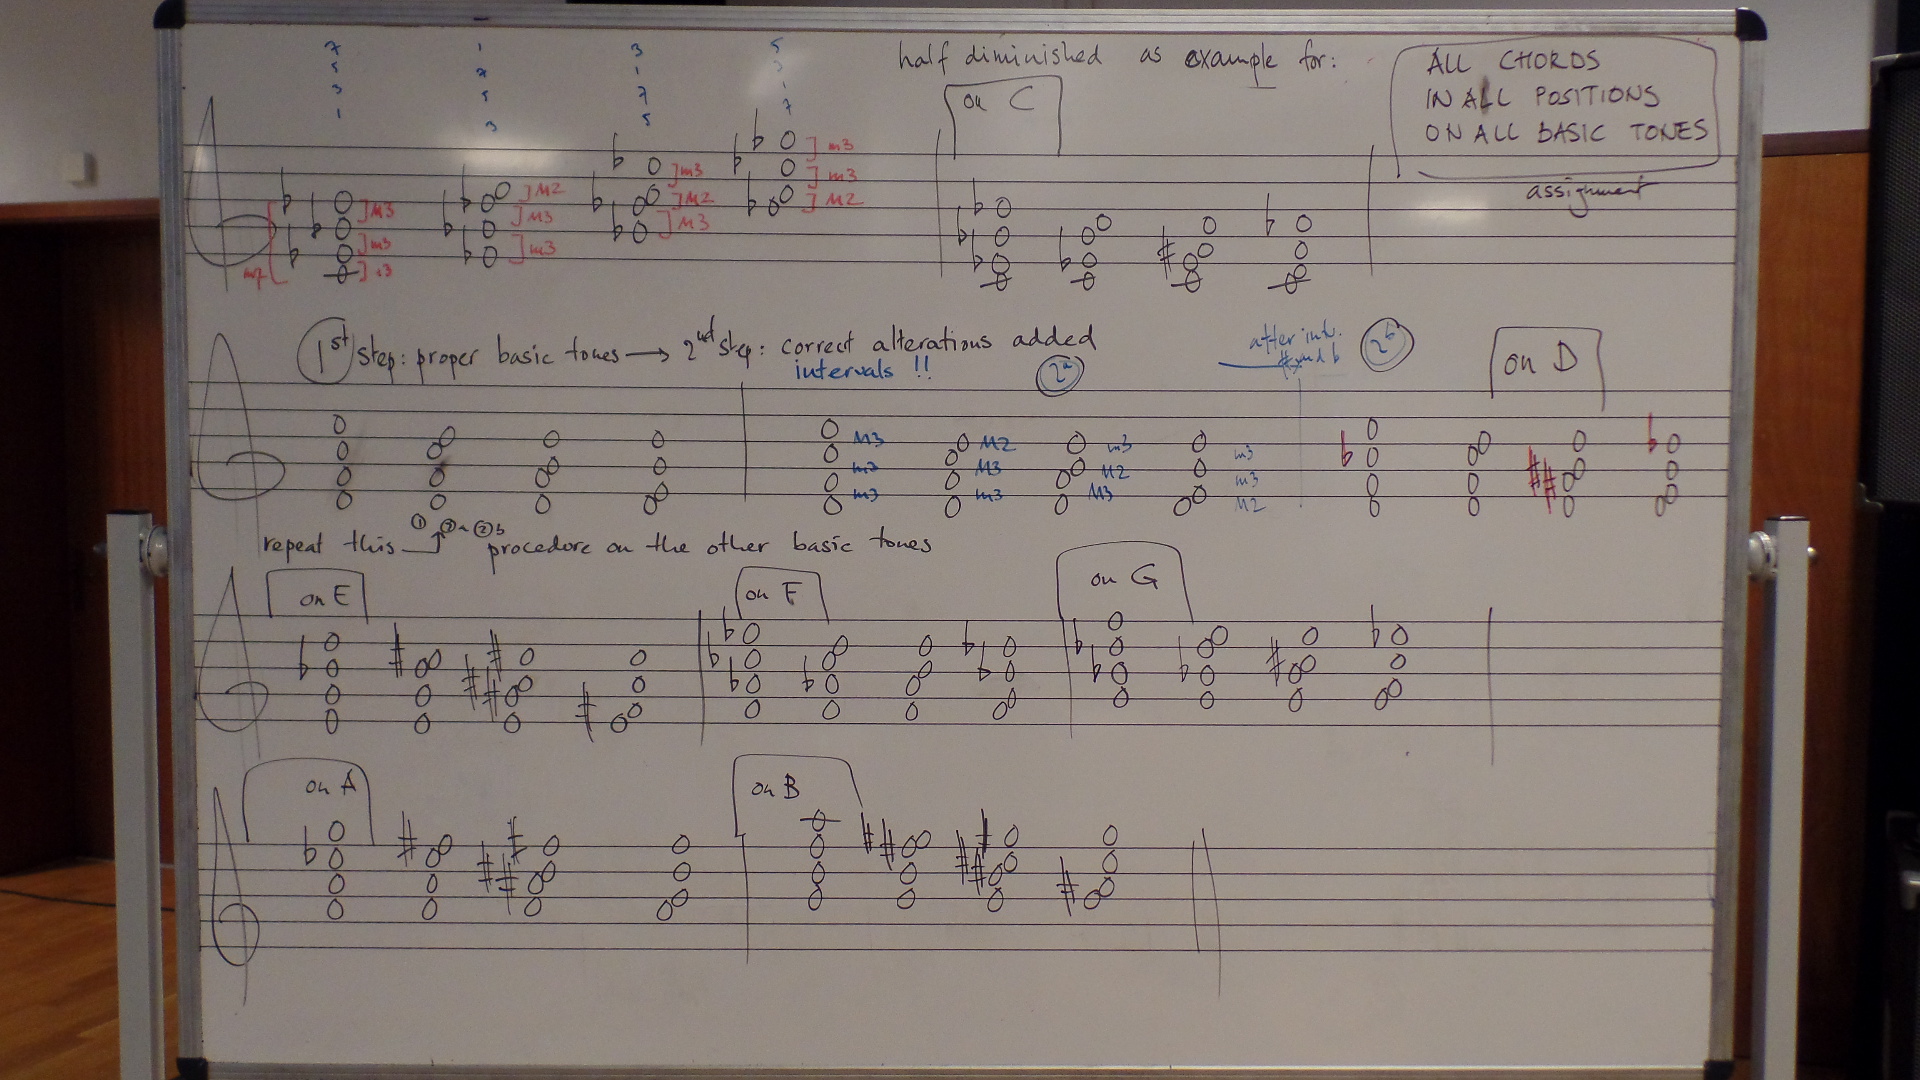 7 1 3 5
5 7 1 3
3 5 7 1
1 3 5 7
half diminished as example for:
ALL CHORDS
IN ALL POSITIONS
ON ALL BASIC TONES
assignment
on C
m3
m3
M2
m3
M2
M3
M2
M3
m3
M3
m3
m7
1st step: proper basic tones → 2nd step: correct alterations added
intervals !!
2a
after intv.
# and b
2b
on D
M3 M2 m3 m3
m3 M3 M2 m3
m3 m3 M3 M2
① ②a ②b
repeat this procedure on the other basic tones
on E
on F
on G
on A
on B